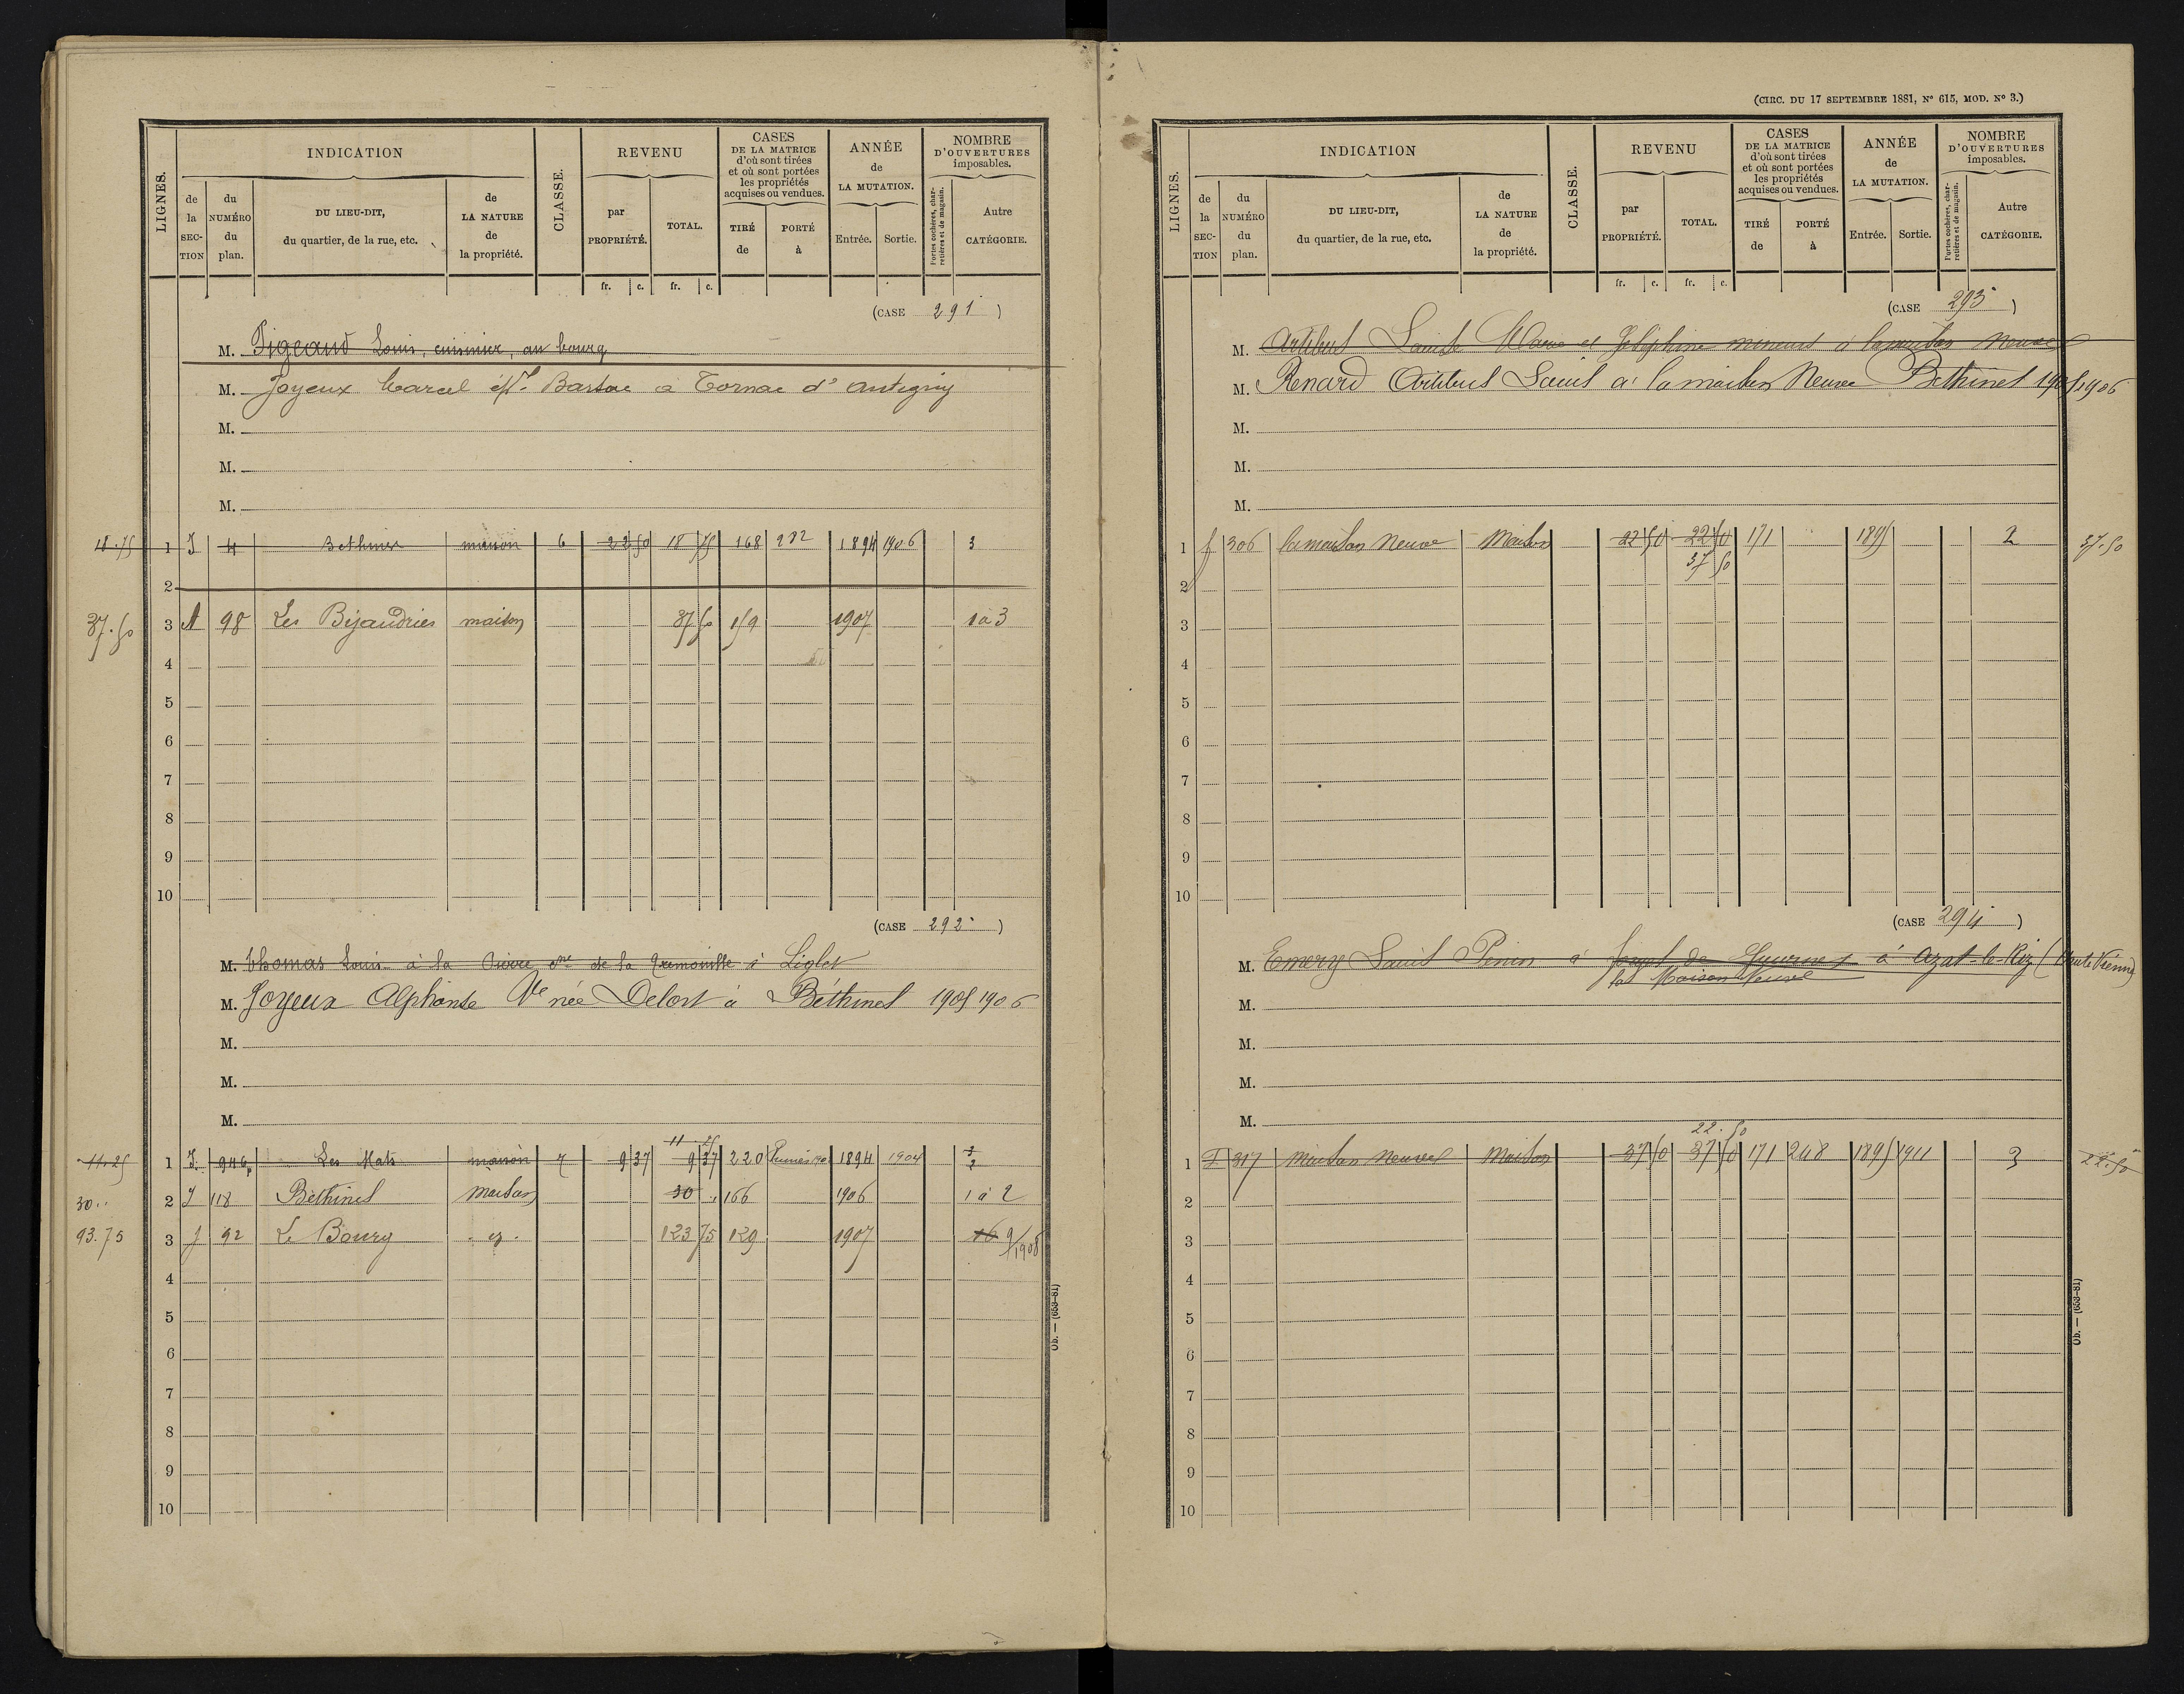 LIGNES.
INDICATION
de la SECTION
du NUMÉRO du plan.
DU LIEU-DIT,
du quartier, de la rue, etc.
de LA NATURE de la propriété.
CLASSE.
REVENU
par PROPRIÉTÉ.
TOTAL.
CASES DE LA MATRICE d'où sont tirées et où sont portées les propriétés acquises ou vendues.
TIRÉ de
PORTÉ à
ANNÉE de LA MUTATION.
Entrée.
Sortie.
NOMBRE D'OUVERTURES imposables.
Portes cochères, charretières et de magasin.
Autre CATÉGORIE.
fr. c. fr. c.
(CASE 291 )
M. Pigeaud Louis, cuisinier, au bourg
M. Joyeux Marcel à Tornac d'Antigny
M.
M.
M.
18.75 1 J 4 Bethines maison 6 22 50 18 75 168 232 1894 1906 3
2
37.50 3 A 98 Les Bijaudries maison 37 50 159 1907 1 à 3
4
5
6
7
8
9
10
(CASE 292 )
M. Thomas Louis à la de la à Liglet
M. Joyeux Alphonse Ve née Delort à Béthines 1905 1906
M.
M.
M.
11.25
11.25 1 J. 946p Les Mats maison 7 9 37 9 37 220 1894 1904 3 2
30.. 2 J 118 Béthines Maison 30 . 166 1906 1 à 2
93.75 3 J 92 Le Bourg 123 75 129 1907 16 9/1908
4
5
6
7
8
9
10
Ob. — (653-81)
(CIRC. DU 17 SEPTEMBRE 1881, N° 615, MOD. N° 3.)
LIGNES.
INDICATION
de la SECTION
du NUMÉRO du plan.
DU LIEU-DIT,
du quartier, de la rue, etc.
de LA NATURE de la propriété.
CLASSE.
REVENU
par PROPRIÉTÉ.
TOTAL.
CASES DE LA MATRICE d'où sont tirées et où sont portées les propriétés acquises ou vendues.
TIRÉ de
PORTÉ à
ANNÉE de LA MUTATION.
Entrée.
Sortie.
NOMBRE D'OUVERTURES imposables.
Portes cochères, charretières et de magasin.
Autre CATÉGORIE.
fr. c. fr. c.
(CASE 293 )
M. Louise Marie et Joséphine mineurs à la maison Neuve
M. Renard Louis à la maison Neuve Béthines 1905 1906
M.
M.
M.
1 J 306 la maison Neuve Maison 22 50 22 50 171 1895 2 37.50
37 50
2
3
4
5
6
7
8
9
10
(CASE 294 )
M. Emery Louis à à Azat-le-Riz (Haute Vienne)
la Maison Neuve
M.
M.
M.
M.
22.50
1 J 317 Maison Neuve Maison 37 50 37 50 171 248 1895 1911 3 22.50
2
3
4
5
6
7
8
9
10
Ob. — (653-81)